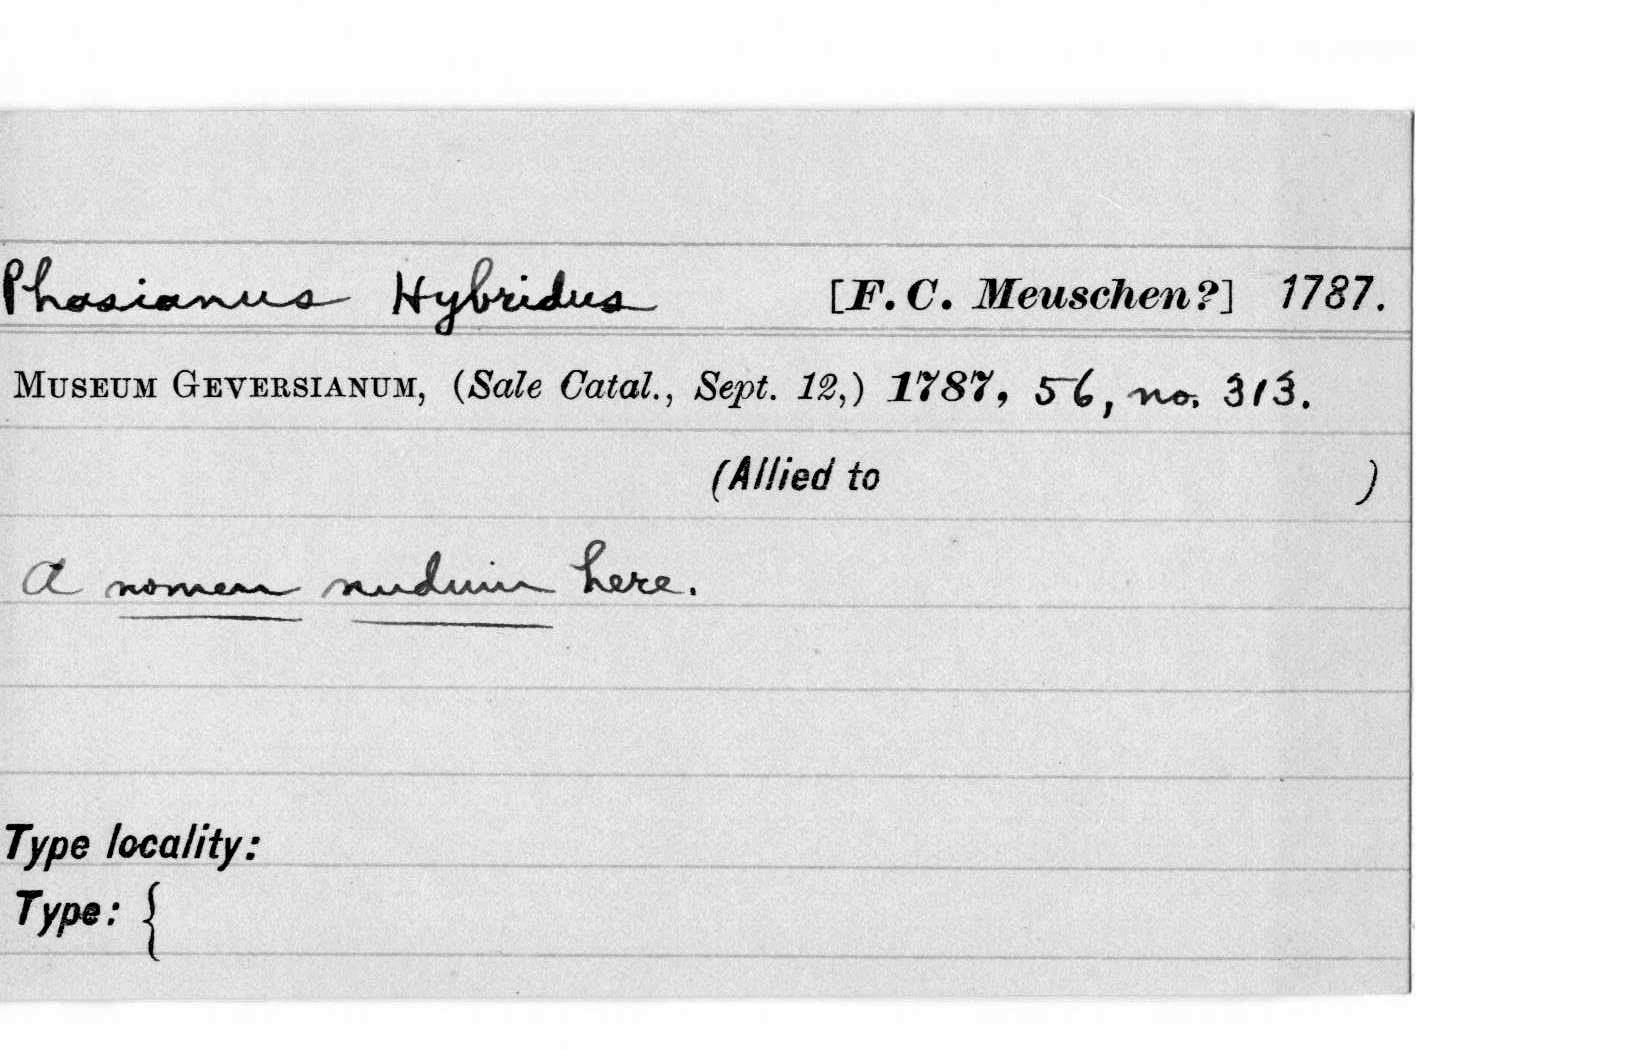 Phasianus Hybridus [F. C. Meuschen?] 1787.
MUSEUM GEVERSIANUM, (Sale Catal., Sept. 12,) 1787, 56, no. 313.
(Allied to )
A nomen nudum here.
Type locality:
Type: {